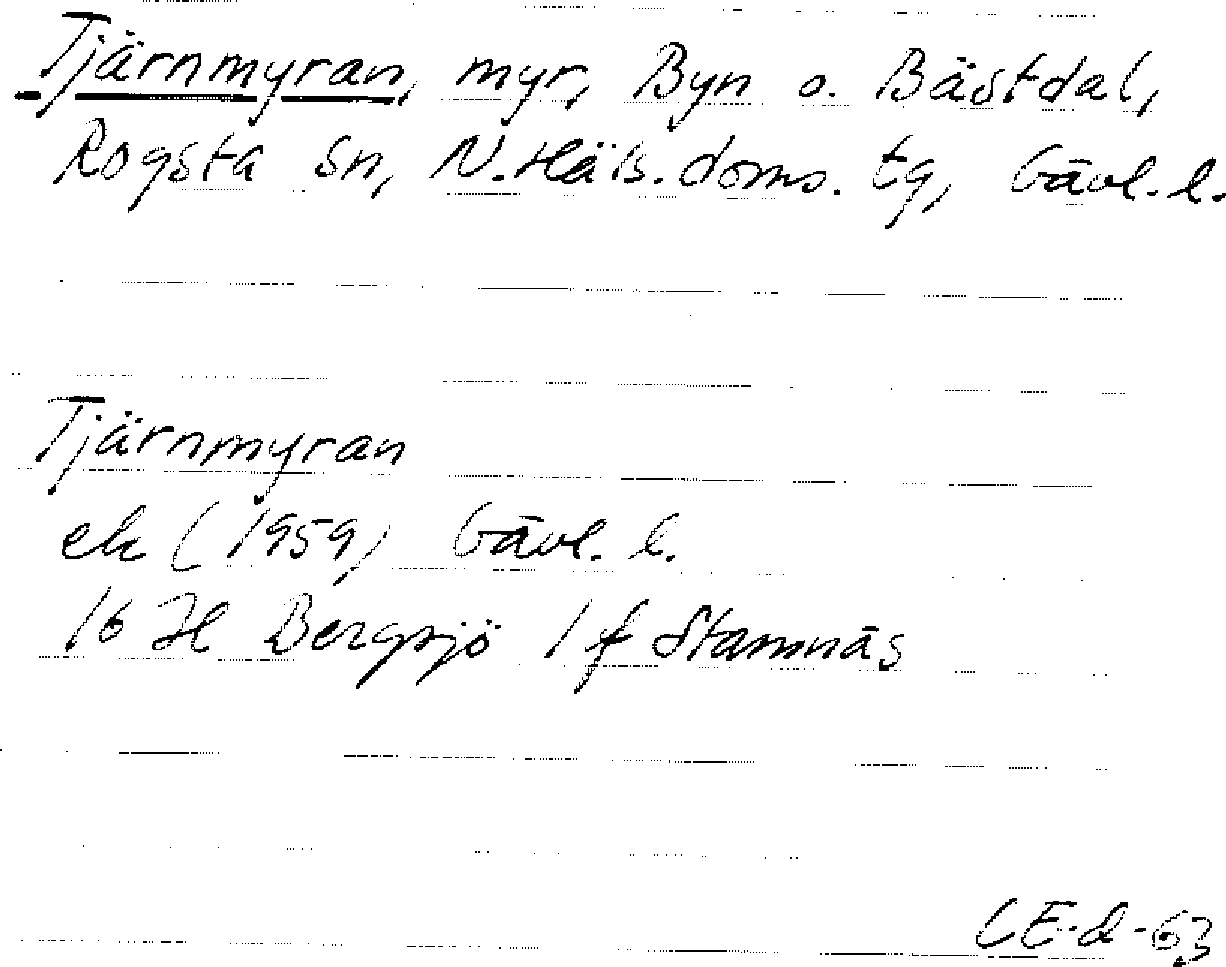 Tjärnmyran, myr, Byn o. Bästdal,
Rogsta sn, N.Häls.doms. tg, Gävl.l.
Tjärnmyran
ek (1959) Gävl. l.
16 H Bergsjö 1 f Stamnäs
CE-d-63